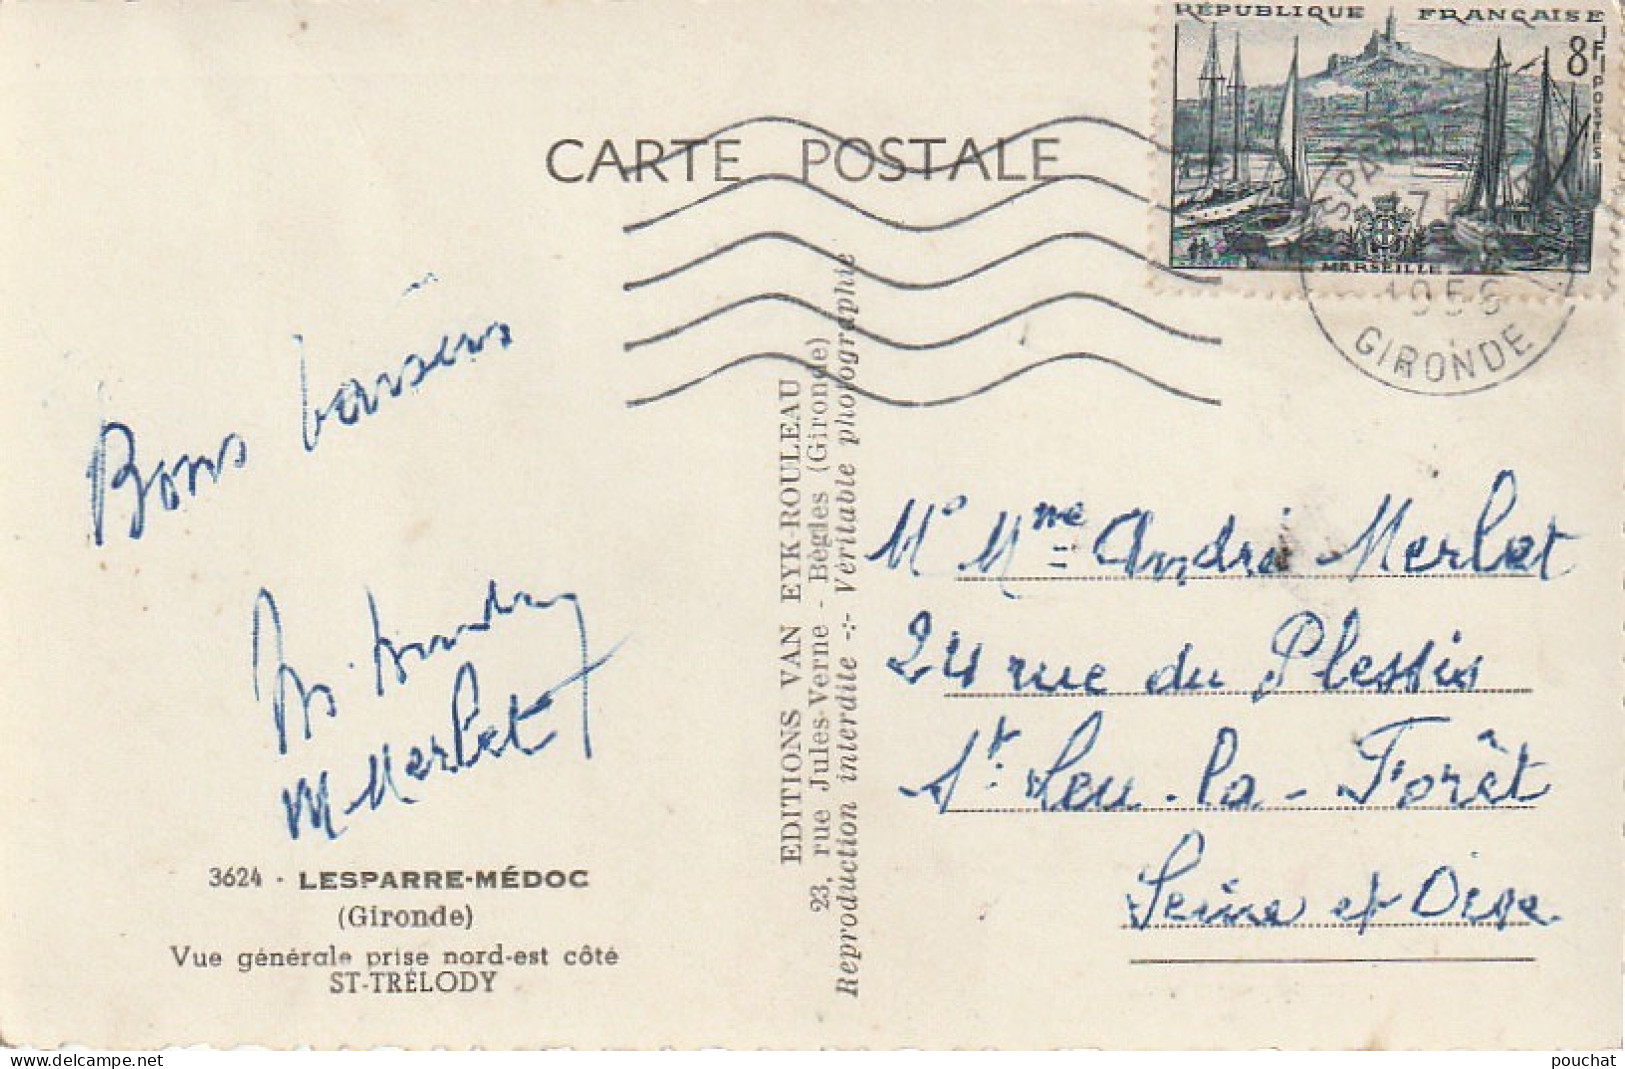 RÉPUBLIQUE FRANÇAISE
8F
POSTES
MARSEILLE
17
1956
GIRONDE
CARTE POSTALE
Bons baisers
Merlet
M. Merlet
3624 - LESPARRE-MÉDOC
(Gironde)
Vue générale prise nord-est côté
ST-TRÉLODY
EDITIONS VAN EYK-ROULEAU
23, rue Jules-Verne - Bègles (Gironde)
Reproduction interdite -:- Véritable photographie
Mr Mme André Merlet
24 rue du Plessis
St Leu-la-Forêt
Seine et Oise
pouchat